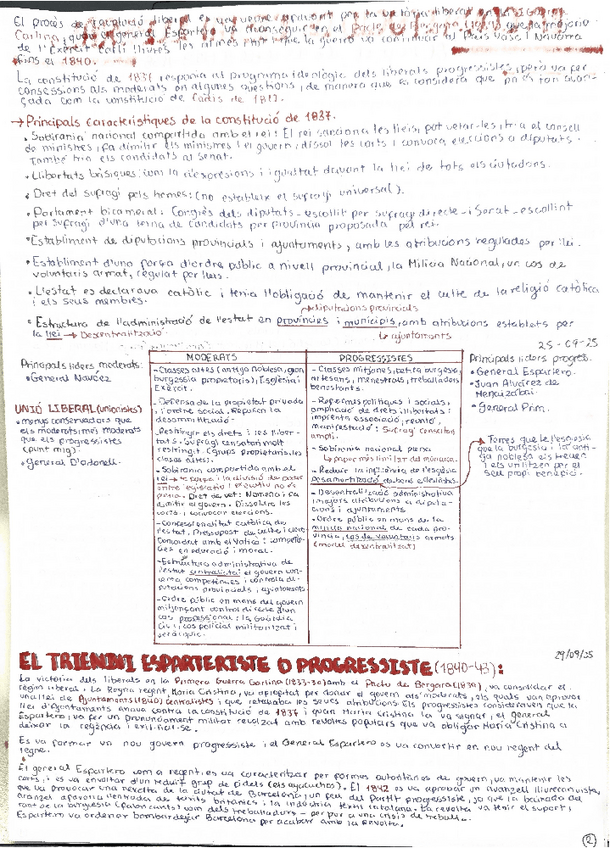 El procés de liberal es va veure per la victòria liberal en la Guerra
Carlina, que el general Espartero va aconseguir en el de que la majoria
de l'Exèrcit Carlí lliurés les armes tot i que la guerra va continuar al País Vasc i Navarra
fins el 1840.
La constitució de 1837 responia al programa ideològic dels liberals progressistes, però va fer
concessions als moderats en algunes qüestions, de manera que es considera que no és tan avan-
çada com la constitució de Cadis de 1812.
→ Principals característiques de la constitució de 1837.
• Sobirania nacional compartida amb el rei: El rei sanciona les lleis, pot vetar-les, tria el consell
de ministres, fa dimitir els ministres i el govern, dissol les corts i convoca eleccions a diputats.
També tria els candidats al senat.
• Llibertats bàsiques: com la d'expressions i igualtat davant la llei de tots els ciutadans.
• Dret del sufragi pels homes: (no estableix el sufragi universal).
• Parlament bicameral: Congrés dels diputats - escollit per sufragi directe - i Senat - escollint
per sufragi d'una terna de candidats per província proposada pel rei.
• Establiment de diputacions provincials i ajuntaments, amb les atribucions regulades per llei.
• Establiment d'una força d'ordre públic a nivell provincial, la Milícia Nacional, un cos de
voluntaris armat, regulat per lleis.
• L'estat es declarava catòlic i tenia l'obligació de mantenir el culte de la religió catòlica
i els seus membres.
→ diputacions provincials
• Estructura de l'administració de l'estat en províncies i municipis, amb atribucions establerts per
la llei → Descentralització
↳ ajuntaments
25-09-25
Principals líders moderats:
• General Narváez
UNIÓ LIBERAL (unionistes)
• menys conservadors que
els moderats i més moderats
que els progressistes
(punt mig).
• General O'Donell.
MODERATS
- Classes altes (antiga noblesa, gran
burgesia propietaris), Església i
Exèrcit.
- Defensa de la propietat privada
i l'ordre social. Repudien la
desamortització.
- Restringir els drets i les lliber-
tats. Sufragi censatari molt
restringit. (grups propietaris, les
classes altes).
- Sobirania compartida amb el
rei →
Dret de vet: Nomena i fa
dimitir el govern. Dissoldre les
corts i convocar eleccions.
- Confessionalitat catòlica de
l'estat. Pressupost de culte i clero.
Concordat amb el Vaticà: competèn-
cies en educació i moral.
- Estructura administrativa de
l'estat centralista: el govern con-
centra competències i controla di-
putacions provincials i ajuntaments
- Ordre públic en mans del govern
mitjançant control directe d'un
cos professional: la Guàrdia
Civil, cos policial militaritzat i
jeràrquic.
PROGRESSISTES
- Classes mitjanes, petita burgesia,
artesans, menestrals, treballadors
benestants.
- Reformes polítiques i socials,
ampliació de drets i llibertats:
impremta associació, reunió,
manifestació; Sufragi censatari
ampli.
- Sobirania nacional plena
↳ paper més limitat del monarca.
- Reduir la influència de l'església
Desamortització de béns eclesiàstics.
- Descentralització administrativa
(majors atribucions a diputa-
cions i ajuntaments
- Ordre públic en mans de la
milícia nacional de cada pro-
víncia, cos de voluntaris armats
(model descentralitzat)
Principals líders progres.
• General Espartero.
• Juan Álvarez de
Mendizábal.
• General Prim.
→ Terres que té l'església
que la burgesia i la anti-
ga noblesa els treuen
i els utilitzen per el
seu propi benefici.
29/09/25
EL TRIENINI ESPARTERISTE O PROGRESSISTE (1840-43):
La victòria dels liberals en la Primera Guerra Carlina (1833-39) amb el Pacte de Bergara (1839), va consolidar el
règim liberal. La Reina regent, Maria Cristina, va apropitar per donar el govern als moderats, els quals van aprovar
una llei de Ajuntaments (1840) centralistes i que retallaba les seves atribucions. Els progressistes consideraven que la
llei d'Ajuntaments anava contra la constitució de 1837 i quan Maria Cristina la va signar, el general
Espartero va fer un pronunciament militar recolzat amb revoltes populars que va obligar Maria Cristina a
deixar la regència i exiliar-se.
Es va formar un nou govern progressiste i el General Espartero es va convertir en nou regent del
regne.
El general Espartero com a regent, es va caracteritzar per formes autoritàries de govern, va mantenir les
corts, i es va envoltar d'un reduït grup de fidels (els ayacuchos). El 1842 es va aprovar un aranzell lliurecanvista,
que va provocar una revolta de la ciutat de Barcelona,
aranzel afavoria l'entrada de teixits britànics i la indústria tèxtil catalana. La revolta va tenir el suport,
tant de la burgesia (fabricants) com dels treballadors - per por a una crisi de treball.
Espartero va ordenar bombardejar Barcelona per acabar amb la revolta.
2